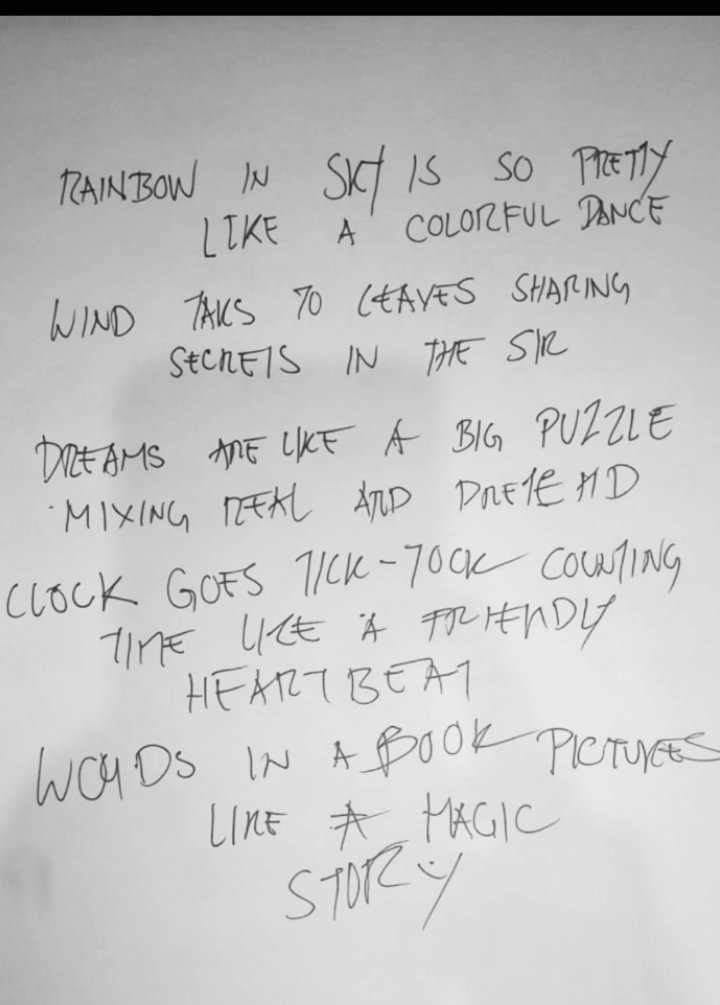 RAINBOW IN SKY IS SO PRETTY
LIKE A COLORFUL DANCE
WIND TAKS TO LEAVES SHARING
SECRETS IN THE SIR
DREAMS ARE LIKE A BIG PUZZLE
MIXING REAL AND PRETEND
CLOCK GOES TICK-TOCK COUNTING
TIME LIKE A FRIENDLY
HEARTBEAT
WORDS IN A BOOK PICTURES
LIKE A MAGIC
STORY